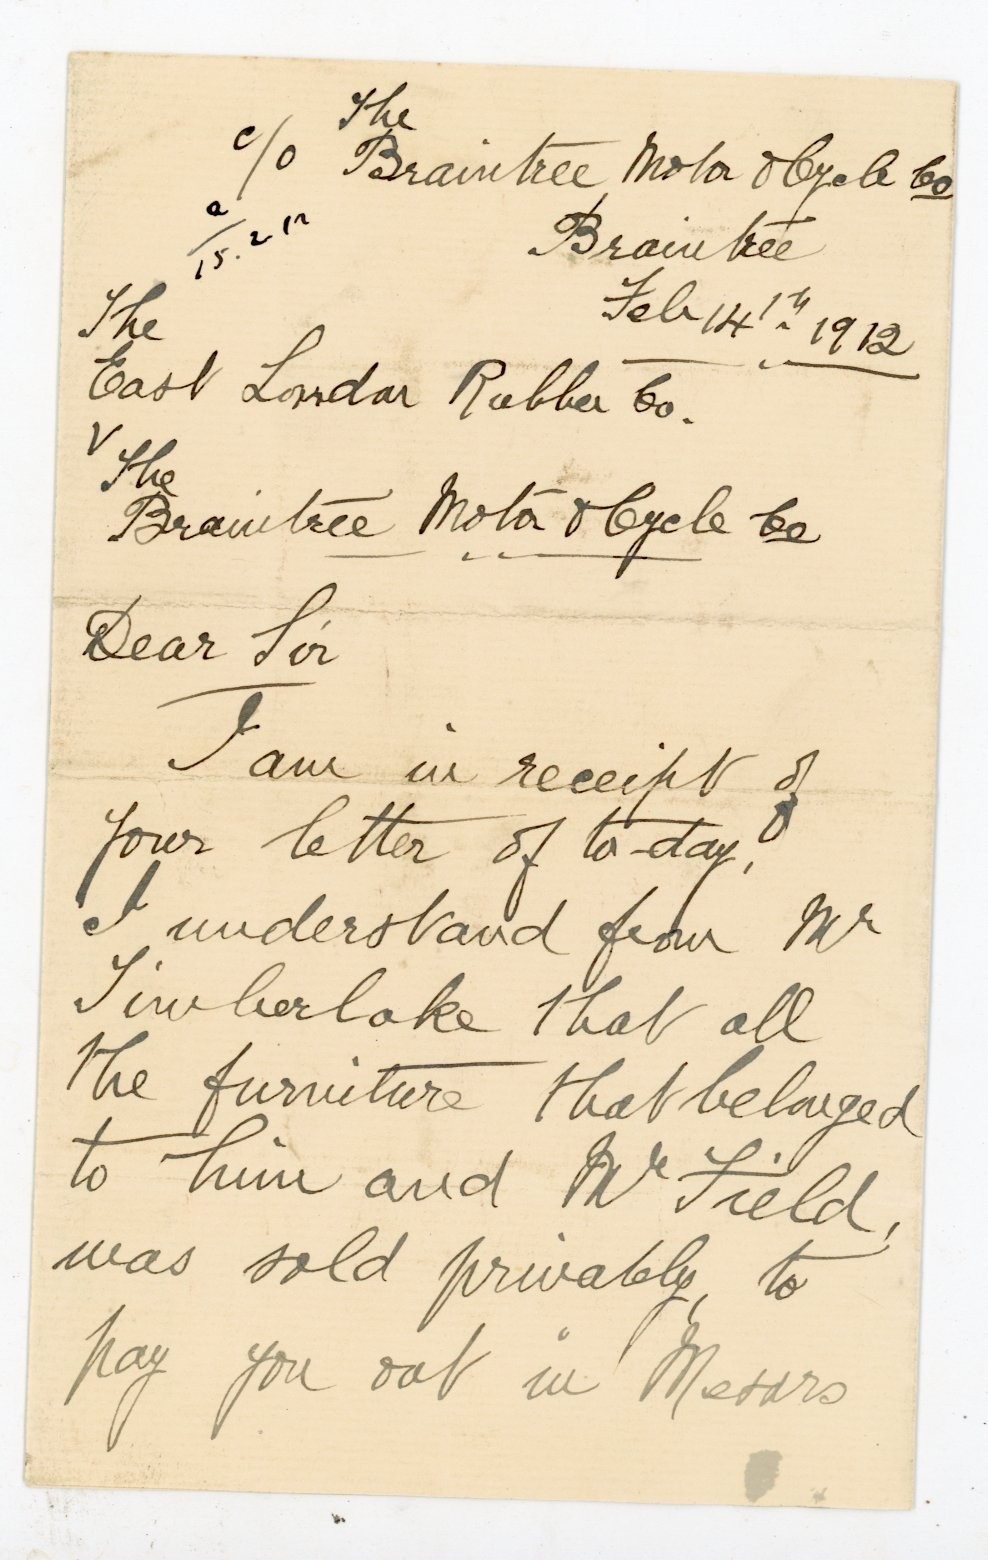 c/o The
Braintree Motor & Cycle Co
a
15.2.12
Braintree
Feb 14th 1912
The
East London Rubber Co.
V
The
Braintree Motor & Cycle Co
Dear Sir
I am in receipt of
your letter of to-day,
I understand from Mr
Timberlake that all
the furniture that belonged
to him and Mr Field,
was sold privately, to
pay you out in Messrs